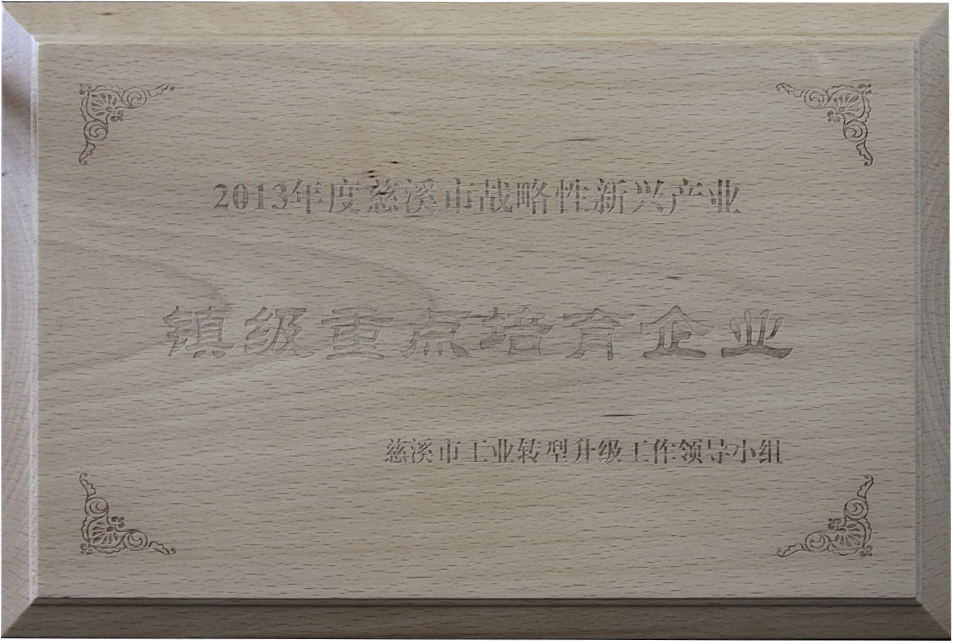 2013年度慈溪市战略性新兴产业
镇级重点培育企业
慈溪市工业转型升级工作领导小组